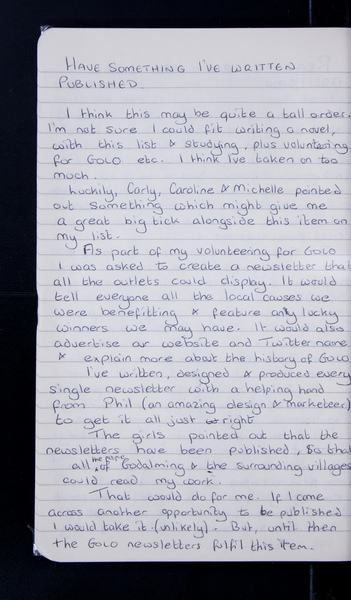 HAVE SOMETHING I'VE WRITTEN
PUBLISHED.
I think this may be quite a tall order.
I'm not sure I could fit writing a novel,
with this list & studying, plus volunteering
for GOLO etc. I think I've taken on too
much.
Luckily, Carly, Caroline & Michelle pointed
out something which might give me
a great big tick alongside this item on
my list.
As part of my volunteering for GOLO
I was asked to create a newsletter that
all the outlets could display. It would
tell everyone all the local causes we
were benefitting & feature any lucky
winners we may have. It would also
advertise our website and Twitter name
& explain more about the history of GOLO.
I've written, designed & produced every
single newsletter with a helping hand
from Phil (an amazing design & marketeer)
to get it all just right
The girls pointed out that the
newsletters have been published, so that
all the people of Godalming & the surrounding villages
could read my work.
That would do for me. If I came
across another opportunity to be published
I would take it (unlikely). But, until then
the GOLO newsletters fulfil this item.